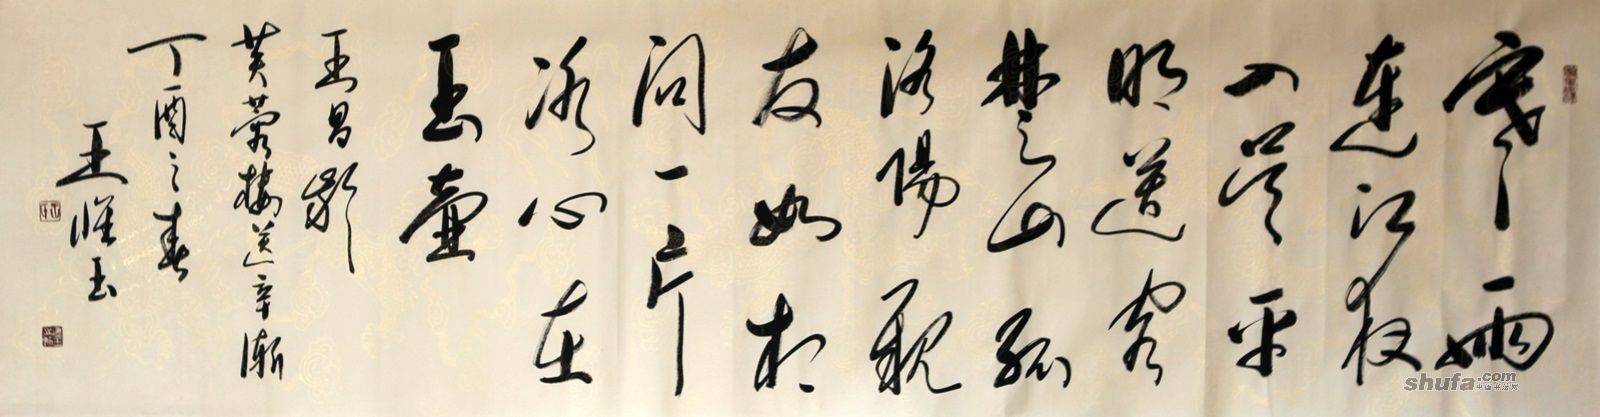 寒雨
連江夜
入吴平
明送客
楚山孤
洛陽親
友如相
问一片
冰心在
玉壶
王昌龄
芙蓉楼送辛漸
丁酉之春
王 玉
shufa.com